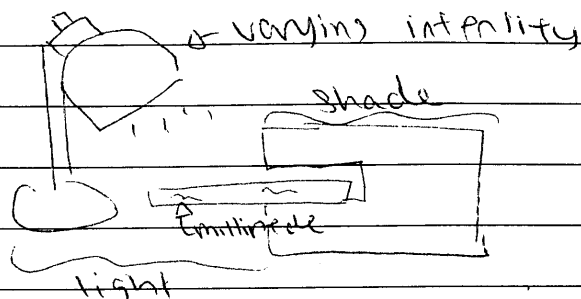 varying intensity
shade
millipede
light